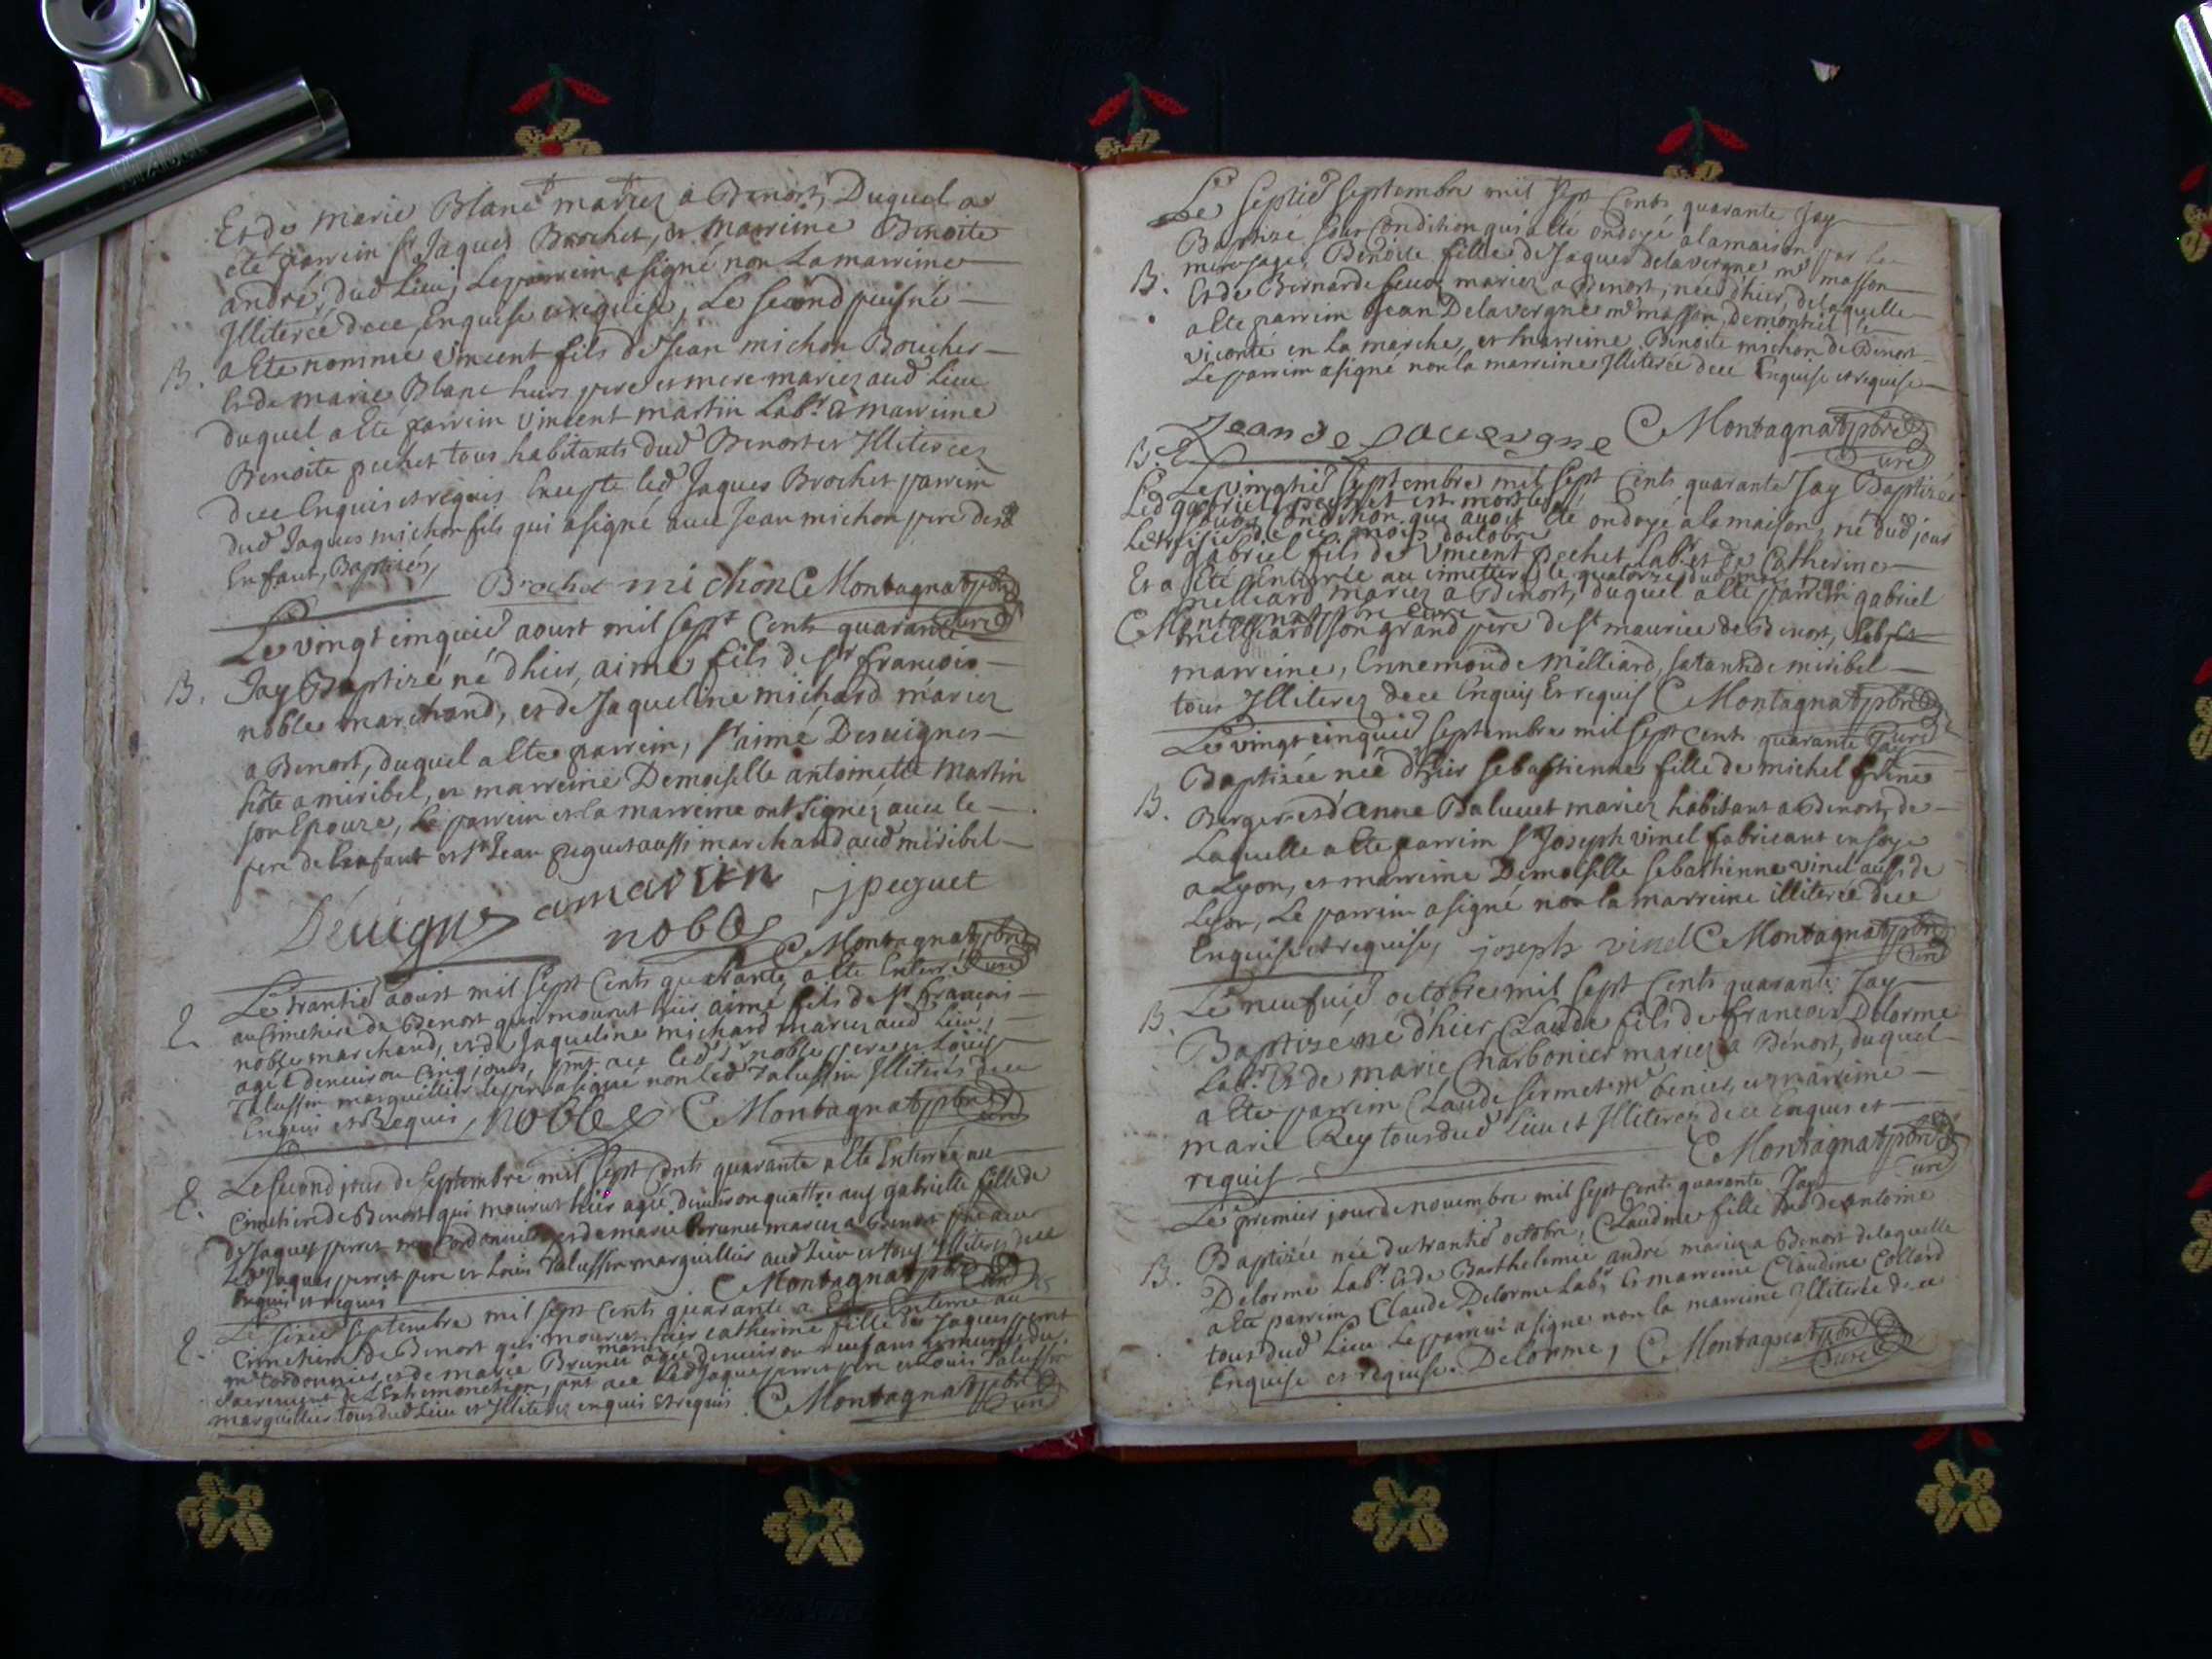 Et de marie Blanc mariez a Benort, Duquel a
été parrein Sr Jaques Brochet, et marreine Benoite
andré, dud Lieu, Le parrein a signé non La marreine
Illiterée de ce Enquise et requise, Le second puisné
B. a Eté nommé vincent fils de Jean michon Boucher
Et de marie Blanc leurs pere et mere mariez aud Lieu
duquel a eté parrein vincent martin Labr et marreine
Benoite pechet tous habitants dud Benort et Illiterez
de ce Enquis et requis Excepté led Jaques Brochet parrein
dud Jaques michon fils qui a signé avec Jean michon pere desd
Enfant, Baptisés,
Brochet michon C Montagnat pbre
curé
Le vingt cinquie aoust mil sept Cents quarante
B. Jay Baptizé né d'hier, aimé fils de Sr francois
noble marchand, et de Jaqueline michard mariez
a Benort, duquel a eté parrein, Sr aimé Desvignes
hôte a miribel, et marreine Demoiselle antoinette Martin
son Epouze, Le parrein et la marreine ont signéz avec le
pere de l'enfant et Sr Jean peguet aussi marchand aud miribel
Dévignes a martin j peguet
noble C Montagnat pbre
curé
Le trantie aoust mil sept Cents quarante, a eté Enterré
E. au Cimetiere de Benort qui mourut hier aimé fils de Sr francois
noble marchand, et de Jaqueline michard mariez aud Lieu,
agé d'environ cinq jours, pnt a ce led Sr noble pere et Louis
Talussin marguillier le pere a signé non led Talussin Illiterés de ce
Enquis et Requis, noble C Montagnat pbre
curé
Le second jour de septembre mil sept Cents quarante a eté Enterrée au
E. Cimetiere de Benort qui mourut hier agée d'environ quattre ans gabrielle fille de
de Jaques perret me Cordonnier, et de marie Brunet mariez a Benort
Led Jaques perret pere et Louis Talussin marguillier aud Lieu et tous Illiterez de ce
Enquis et requis C Montagnat pbre curé
Le sixie septembre mil sept Cents quarante a Eté Enterrée au
E. Cimetiere de Benort qui mourut hier catherine fille de Jaques perret
me Cordonnier, et de marie Brunet mariez agée d'environ neuf ans et munie du
sacrement de L'Extremonction, pnt a ce Led Jaques perret pere et Louis Talussin
marguillier tous dud Lieu et Illiterez enquis et requis C Montagnat pbre
curé
Le septie septembre mil sept Cents quarante Jay
Baptizé sous Condition qui a eté ondoyé a la maison par la
mere sage, Benoite fille de Jaques Delavergne me masson
B. Et de Bernarde mariez a Benort, née d'hier, de laquelle
a Eté parrein Jean Delavergne me masson, de le
viconte en La marche, et marreine Benoite michon de Benort
Le parrein a signé non la marreine Illiterée de ce Enquise et requise
Jean de Lavergne C Montagnat pbre
curé
B. E
Le vingtie septembre mil sept Cents quarante Jay Baptizé
Led gabriel pechet est mort le
sous Condition que avoit été ondoyé a la maison, né dud jour
Le treizie de ce mois d'octobre
gabriel fils de vincent pechet Labr et de Catherine
Et a Eté Enterrée au cimetiere le quatorze dud mois 1740
milliard mariez a Benort, duquel a eté parrein gabriel
C Montagnat pbre curé
milliard son grand pere de St maurice de Benort, Labr Et
marreine, Ennemonde Milliard, sa tante de miribel
tous Illiterez de ce Enquis Et requis C Montagnat pbre
curé
Le vingt cinquie septembre mil sept cents quarante Jay
Baptizée née d'hier sebastienne fille de michel
B. Berger et d'Anne Baluvet mariez habitant a Benort, de
Laquelle a eté parrein Sr Joseph vinel fabricant en soye
a Lyon, et marreine Demoiselle sebastienne vinel aussi de
Leon, Le parrein a signé non la marreine illiterée de ce
Enquise et requise, joseph vinel C Montagnat pbre
curé
B. Le neufvie octobre mil sept Cents quarante Jay
Baptizé né d'hier, Claude fils de francois Delorme
Labr Et de marie Charbonier mariez a Benort, duquel
a Eté parrein Claude sermet me benier, et marreine
marie Rey tous dud Lieu et Illiterez de ce Enquis et
requis C Montagnat pbre
curé
Le premier jour de novembre mil sept Cents quarante Jay
Baptizée née du trantie octobre, Claudine fille de antoine
B. Delorme Labr Et de Barthelemie andré mariez a Benort de laquelle
a Eté parrein Claude Delorme Labr, Et marreine Claudine Collard
tous dud Lieu Le parrein a signé non la marreine Illiterée de ce
Enquise et requise. Delorme, C Montagnat pbre
curé